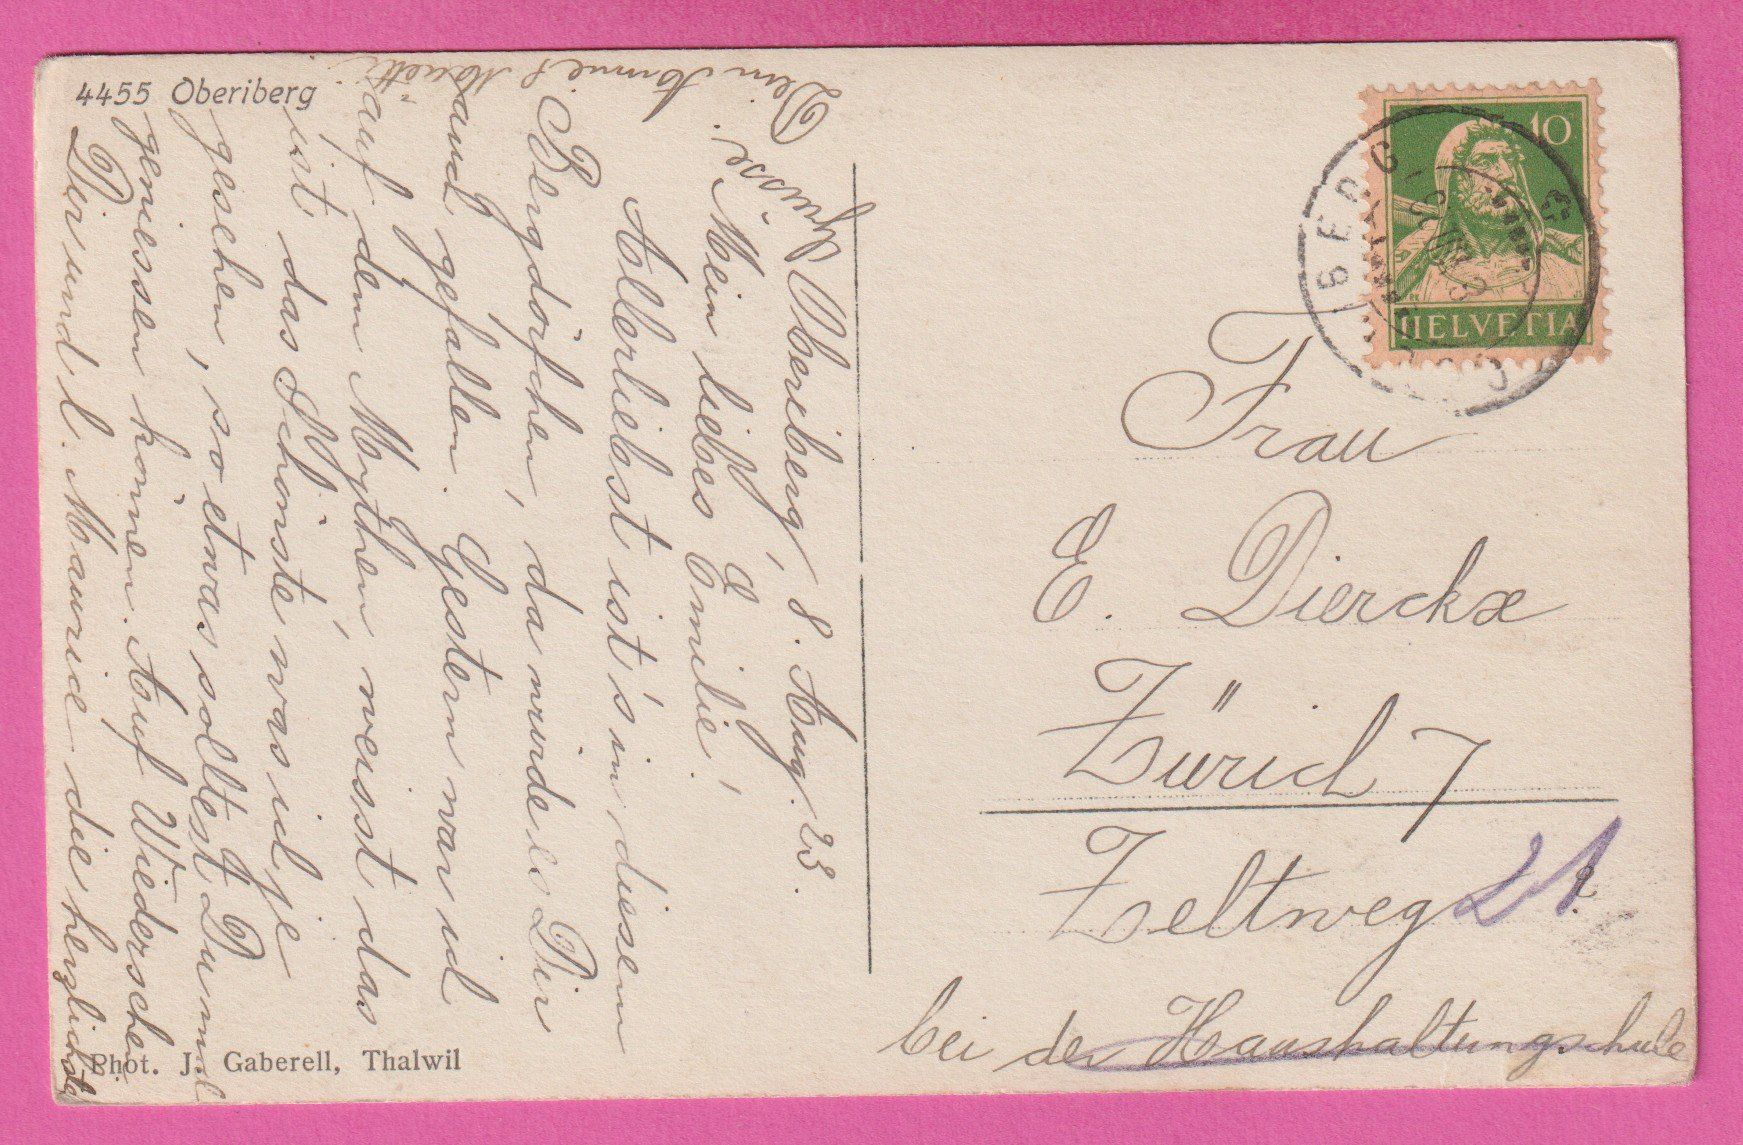 4455 Oberiberg
Oberiberg, 8. Aug. 23.
Mein liebes Emilie!
Allerliebst ist's in diesem
Bergdörfchen, da würde es Dir
auch gefallen. Gestern war ich
auf dem Mythen, weisst das
ist das Schönste was ich je
gesehen, so etwas solltest Du mal
geniessen können. Auf Wiedersehen
Dir und l. Maurice die herzlichsten
Grüsse
Dein
HELVETIA
10
Frau
E. Dierckx
Zürich 7
Zeltweg 21
bei der Haushaltungschule
Phot. J. Gaberell, Thalwil